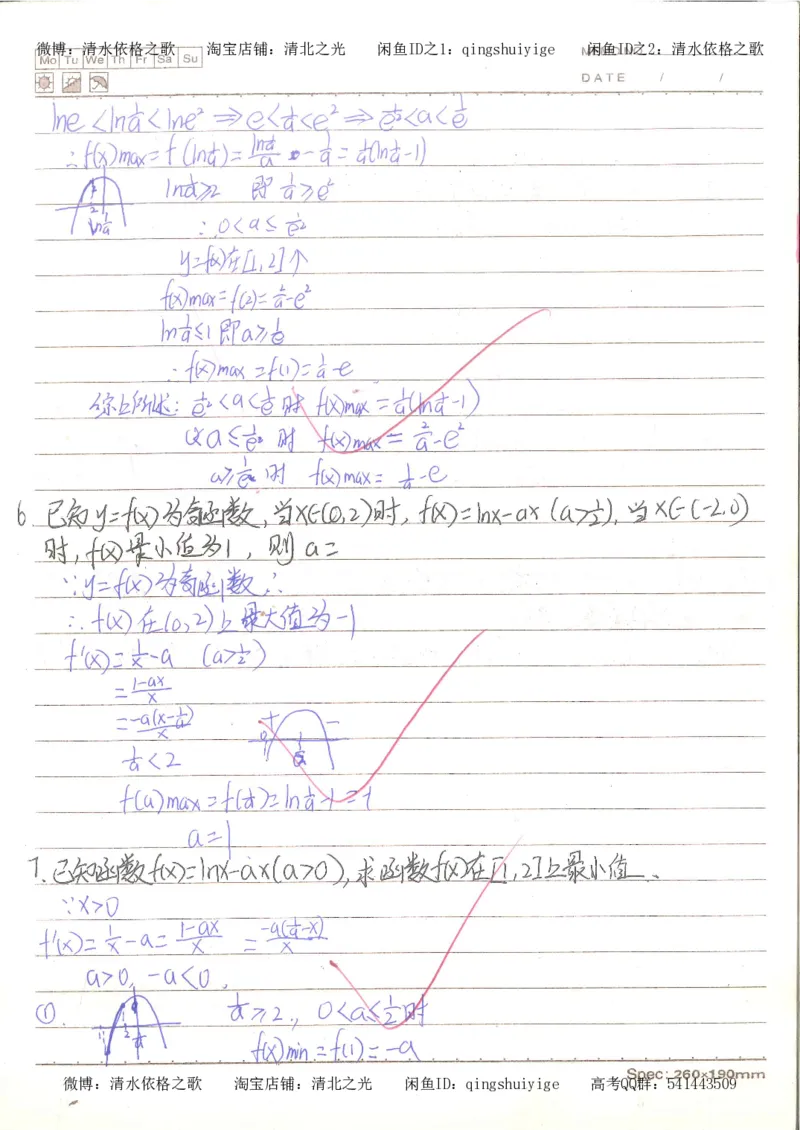 微博：清水依格之歌 淘宝店铺：清北之光 闲鱼ID之1：qingshuiyige 闲鱼ID之2：清水依格之歌
Mo Tu We Th Fr Sa Su
DATE / /
lne<ln1/a<lne² ⇒ e<1/a<e² ⇒ 1/e²<a<1/e
∴f(x)max=f(ln1/a)=ln1/a/a - 1/a = 1/a(ln1/a-1)
ln1/a≥2 即 1/a≥e²
∴0<a≤1/e²
y=f(x)在[1,2]↑
f(x)max=f(2)=2/a-e²
ln1/a≤1 即a≥1/e
∴f(x)max=f(1)=1/a-e
综上所述：1/e²<a<1/e时 f(x)max=1/a(ln1/a-1)
0<a≤1/e² 时 f(x)max=2/a-e²
a≥1/e 时 f(x)max=1/a-e
6 已知y=f(x)为奇函数,当x∈(0,2)时,f(x)=lnx-ax(a>1/2),当x∈(-2,0)
时,f(x)最小值为1,则a=
∵y=f(x)为奇函数∴
∴f(x)在(0,2)上最大值为-1
f'(x)=1/x-a (a>1/2)
=1-ax/x
=-a(x-1/a)/x
1/a<2
f(a)max=f(1/a)=ln1/a-1=-1
a=1
7.已知函数f(x)=lnx-ax(a>0),求函数f(x)在[1,2]上最小值
∵x>0
f'(x)=1/x-a=1-ax/x =-a(1/a-x)/x
a>0,-a<0,
① 1/a≥2,,0<a≤1/2时
f(x)min=f(1)=-a
Spec: 260x190mm
微博：清水依格之歌 淘宝店铺：清北之光 闲鱼ID：qingshuiyige 高考QQ群：541443509